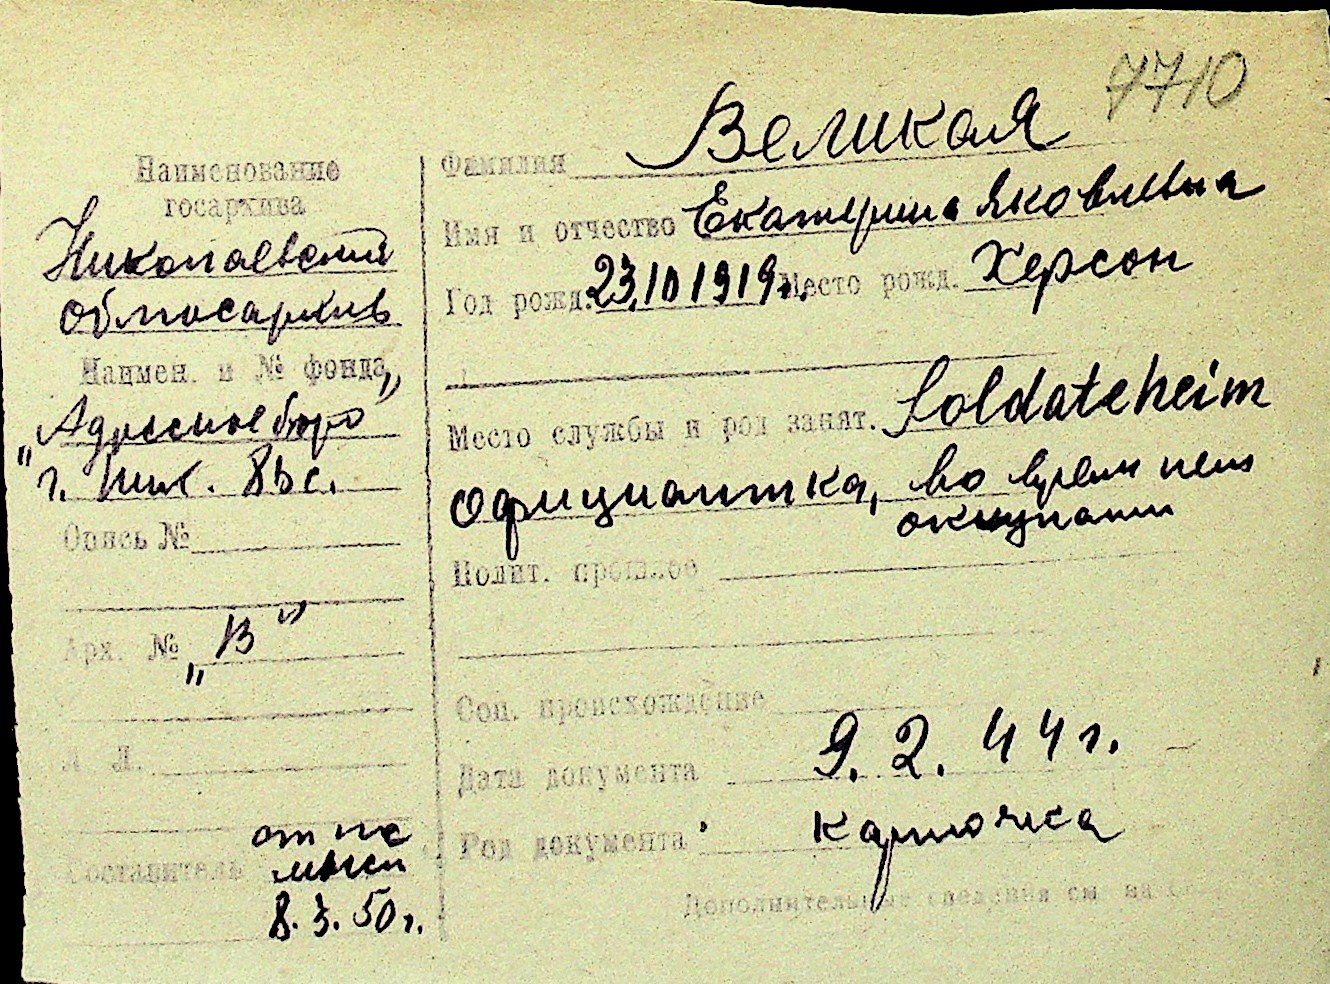 7710
Наименование
госархива
Николаевский
облгосархив
Наимен. и № фонда
"Адресное бюро"
г. Ник.
Опись №
Арх. № "В"
Л.
Составитель
8.3.50г.
Фамилия Великая
Имя и отчество Екатерина Яковлевна
Год рожд. 23.10 1919г. Место рожд. Херсон
Место службы и род занят. Soldateheim
официантка, во врем нем
оккупации
Полит. прошлое
Соц. происхождение
Дата документа 9.2.44г.
Род документа карточка
Дополнительные сведения см. на